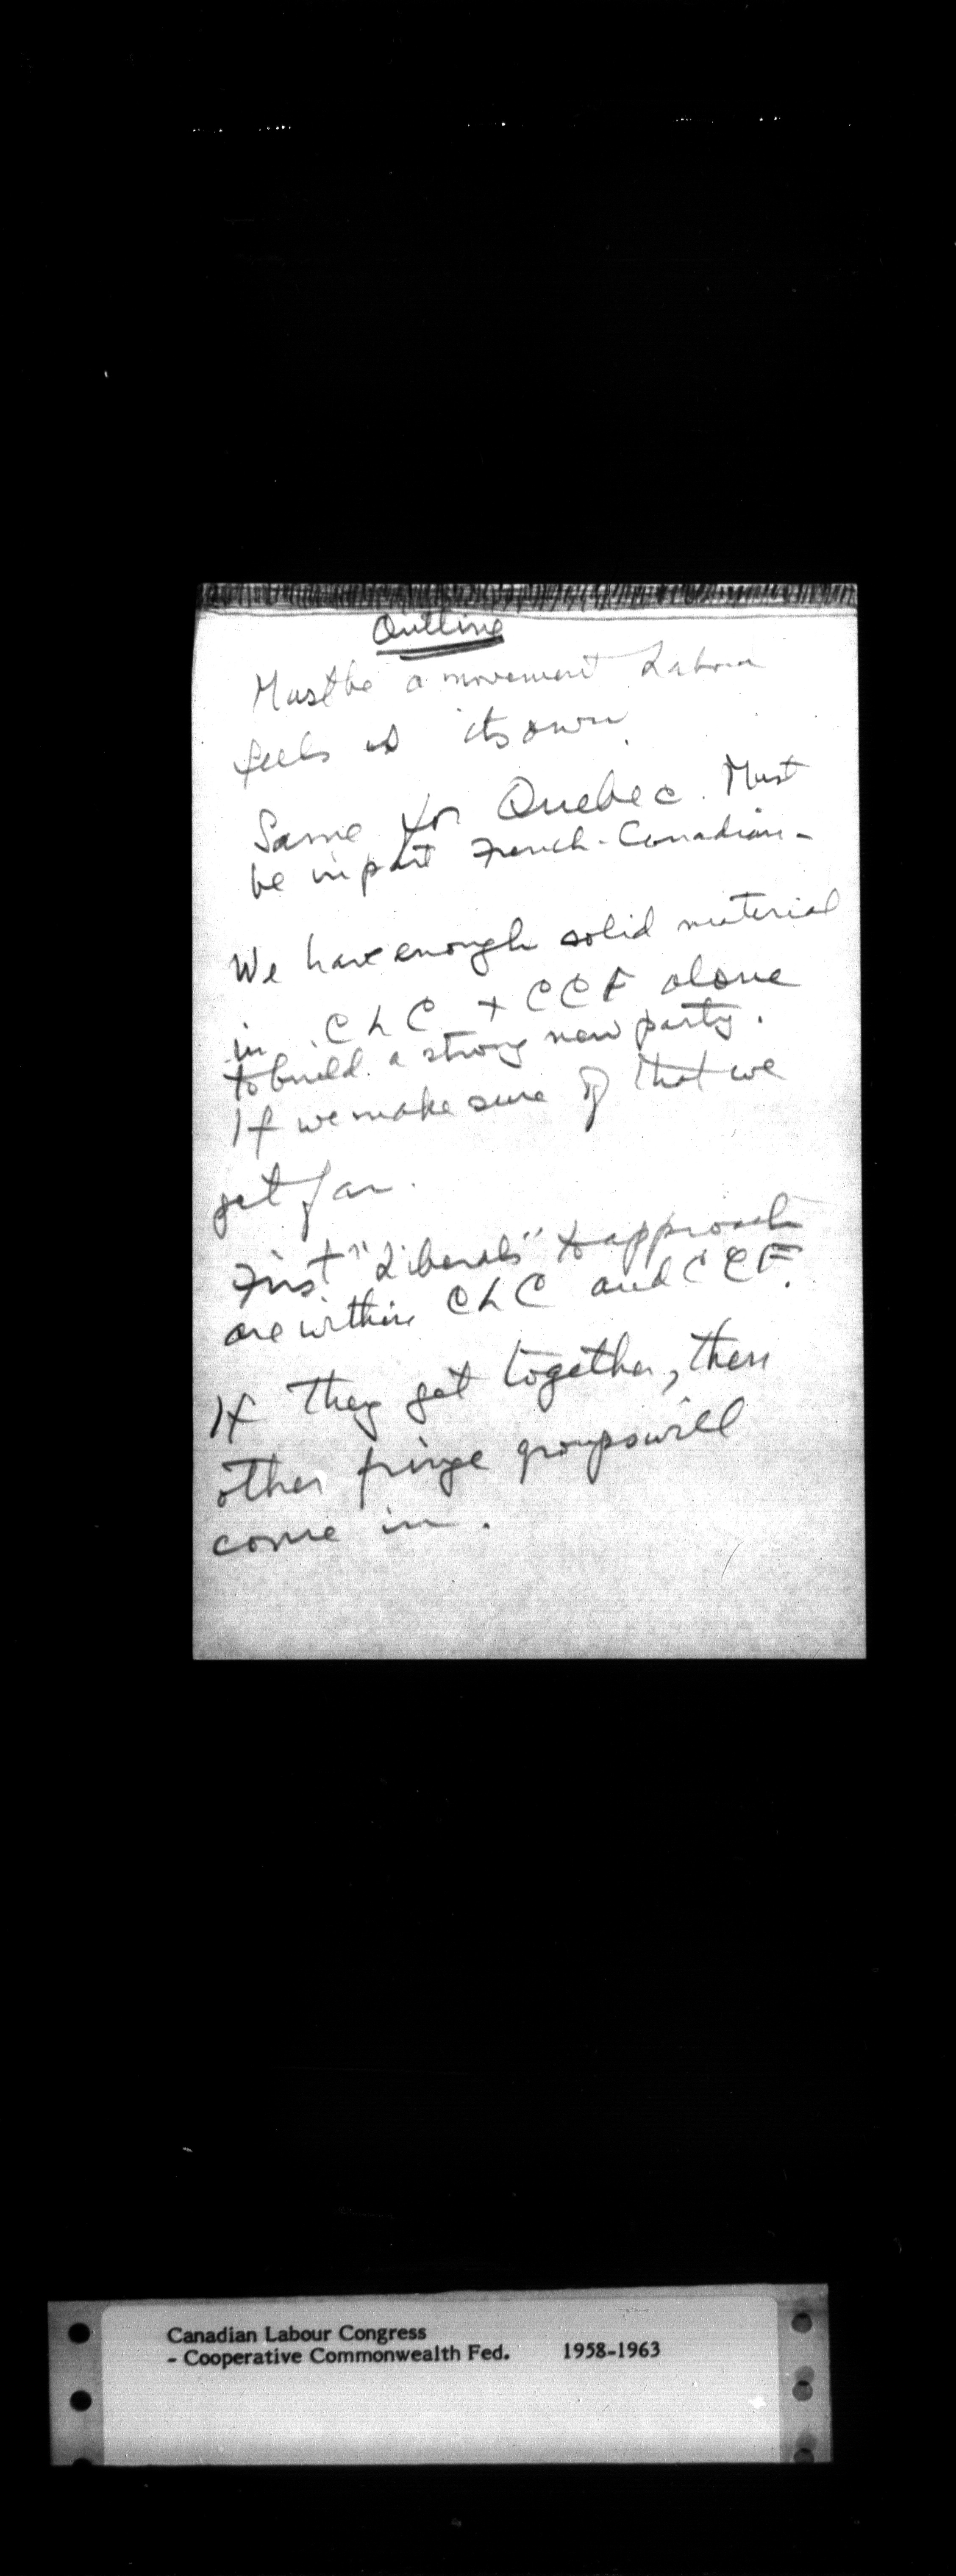 Outline
Must be a movement Labour
feels is its own
Same for Quebec. Must
be in part French-Canadian -
We have enough solid material
in CLC + CCF alone
to build a strong new party.
If we make sure of that we
get far.
First "Liberals" to approach
are within CLC and CCF.
If they get together, then
other fringe groups will
come in.
Canadian Labour Congress
- Cooperative Commonwealth Fed. 1958-1963